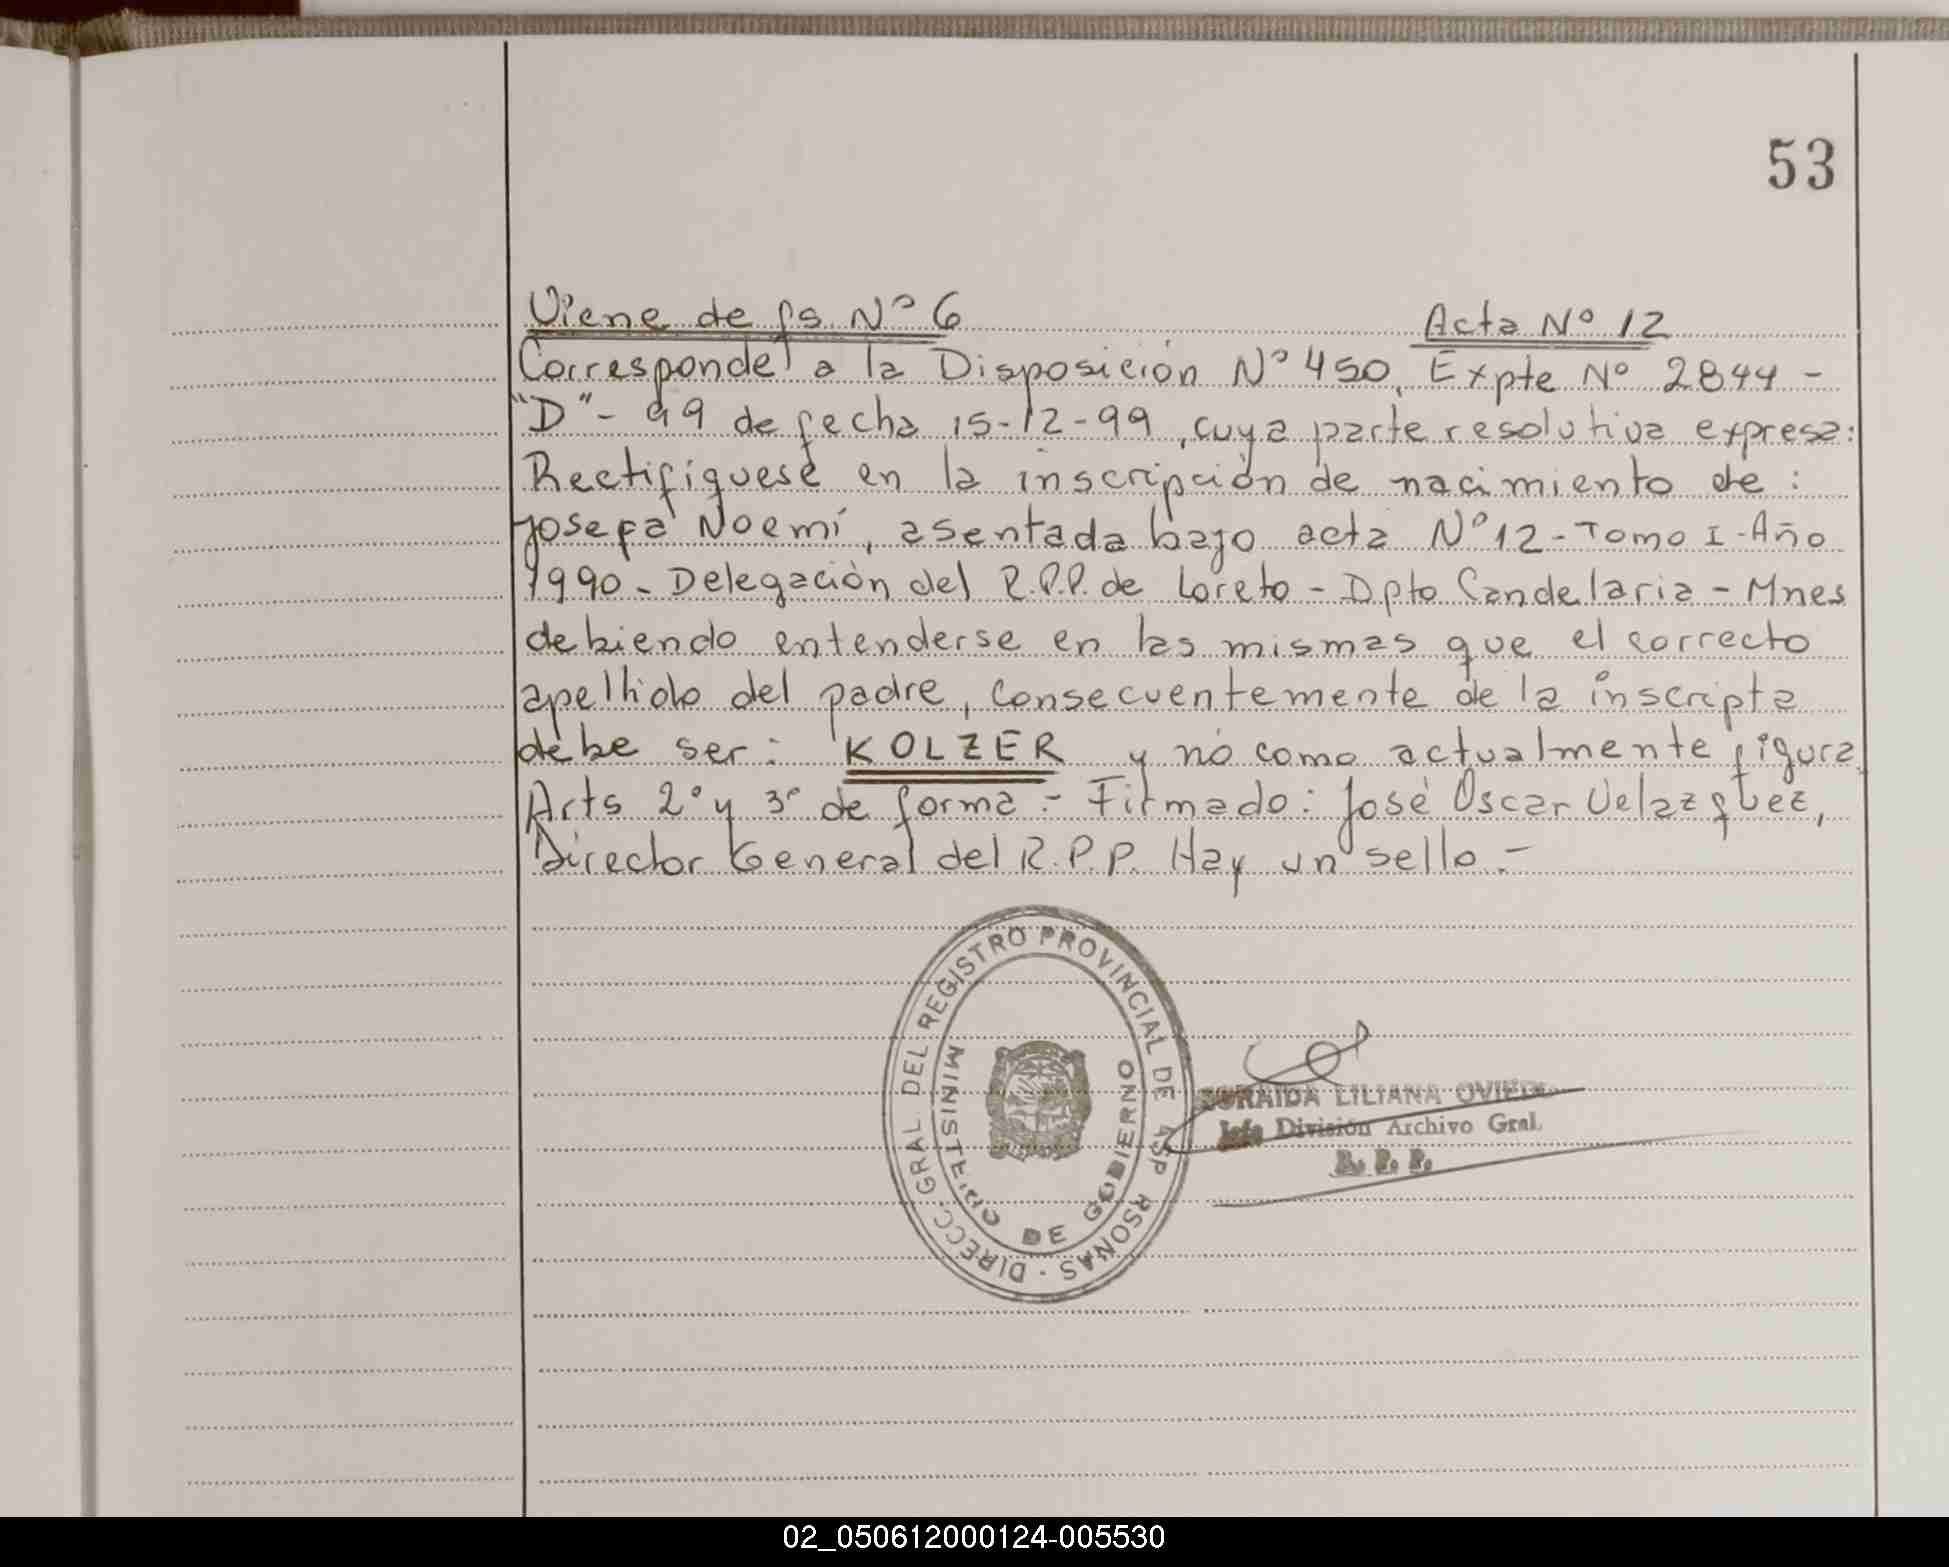 53
Viene de fs Nº 6 Acta Nº 12
Corresponde a la Disposición Nº 450, Expte Nº 2844 -
"D" - 99 de fecha 15-12-99, cuya parte resolutiva expresa:
Rectifíquese en la inscripción de nacimiento de:
Josefa Noemí, asentada bajo acta Nº 12 - Tomo I - Año
1990 - Delegación del R.P.P. de Loreto - Dpto Candelaria - Mnes
debiendo entenderse en las mismas que el correcto
apellido del padre, consecuentemente de la inscripta
debe ser: KOLZER y no como actualmente figura.
Arts 2º y 3º de forma.- Firmado: José Oscar Velazquez,
Director General del R.P.P. Hay un sello.-
DIRECC. GRAL DEL REGISTRO PROVINCIAL DE PERSONAS
MINISTERIO DE GOBIERNO
LILIANA
Jefe División Archivo Gral.
R. P. P.
02_050612000124-005530